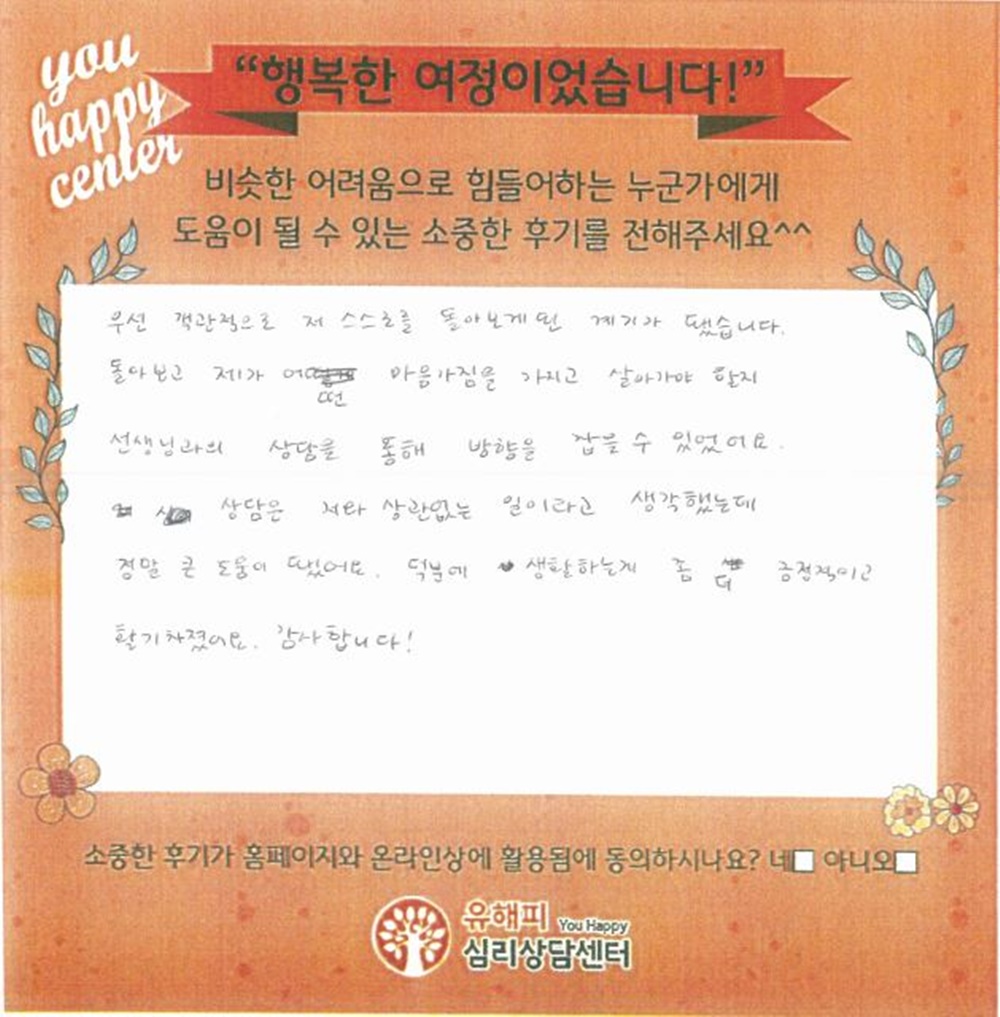 you
happy
center
“행복한 여정이었습니다!”
비슷한 어려움으로 힘들어하는 누군가에게
도움이 될 수 있는 소중한 후기를 전해주세요^^
우선 객관적으로 저 스스로를 돌아보게 된 계기가 됐습니다.
돌아보고 제가 어떤 마음가짐을 가지고 살아가야 할지
선생님과의 상담을 통해 방향을 잡을 수 있었어요.
상담은 저와 상관없는 일이라고 생각했는데
정말 큰 도움이 됐어요. 덕분에 생활하는게 좀 더 긍정적이고
활기차졌어요. 감사합니다!
소중한 후기가 홈페이지와 온라인상에 활용됨에 동의하시나요? 네□ 아니오□
유해피 You Happy
심리상담센터